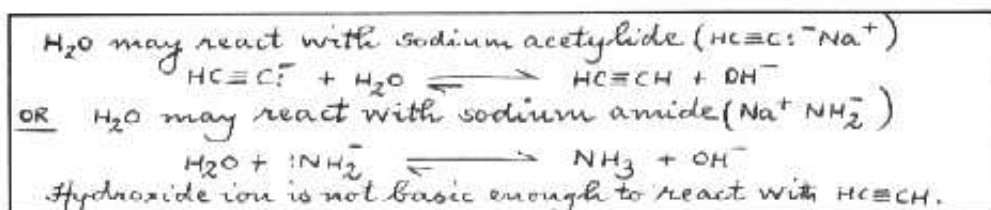 H₂O may react with sodium acetylide (HC≡C:⁻Na⁺)
HC≡C:⁻ + H₂O ⇌ HC≡CH + OH⁻
OR H₂O may react with sodium amide (Na⁺ NH₂⁻)
H₂O + :NH₂⁻ ⇌ NH₃ + OH⁻
Hydroxide ion is not basic enough to react with HC≡CH.